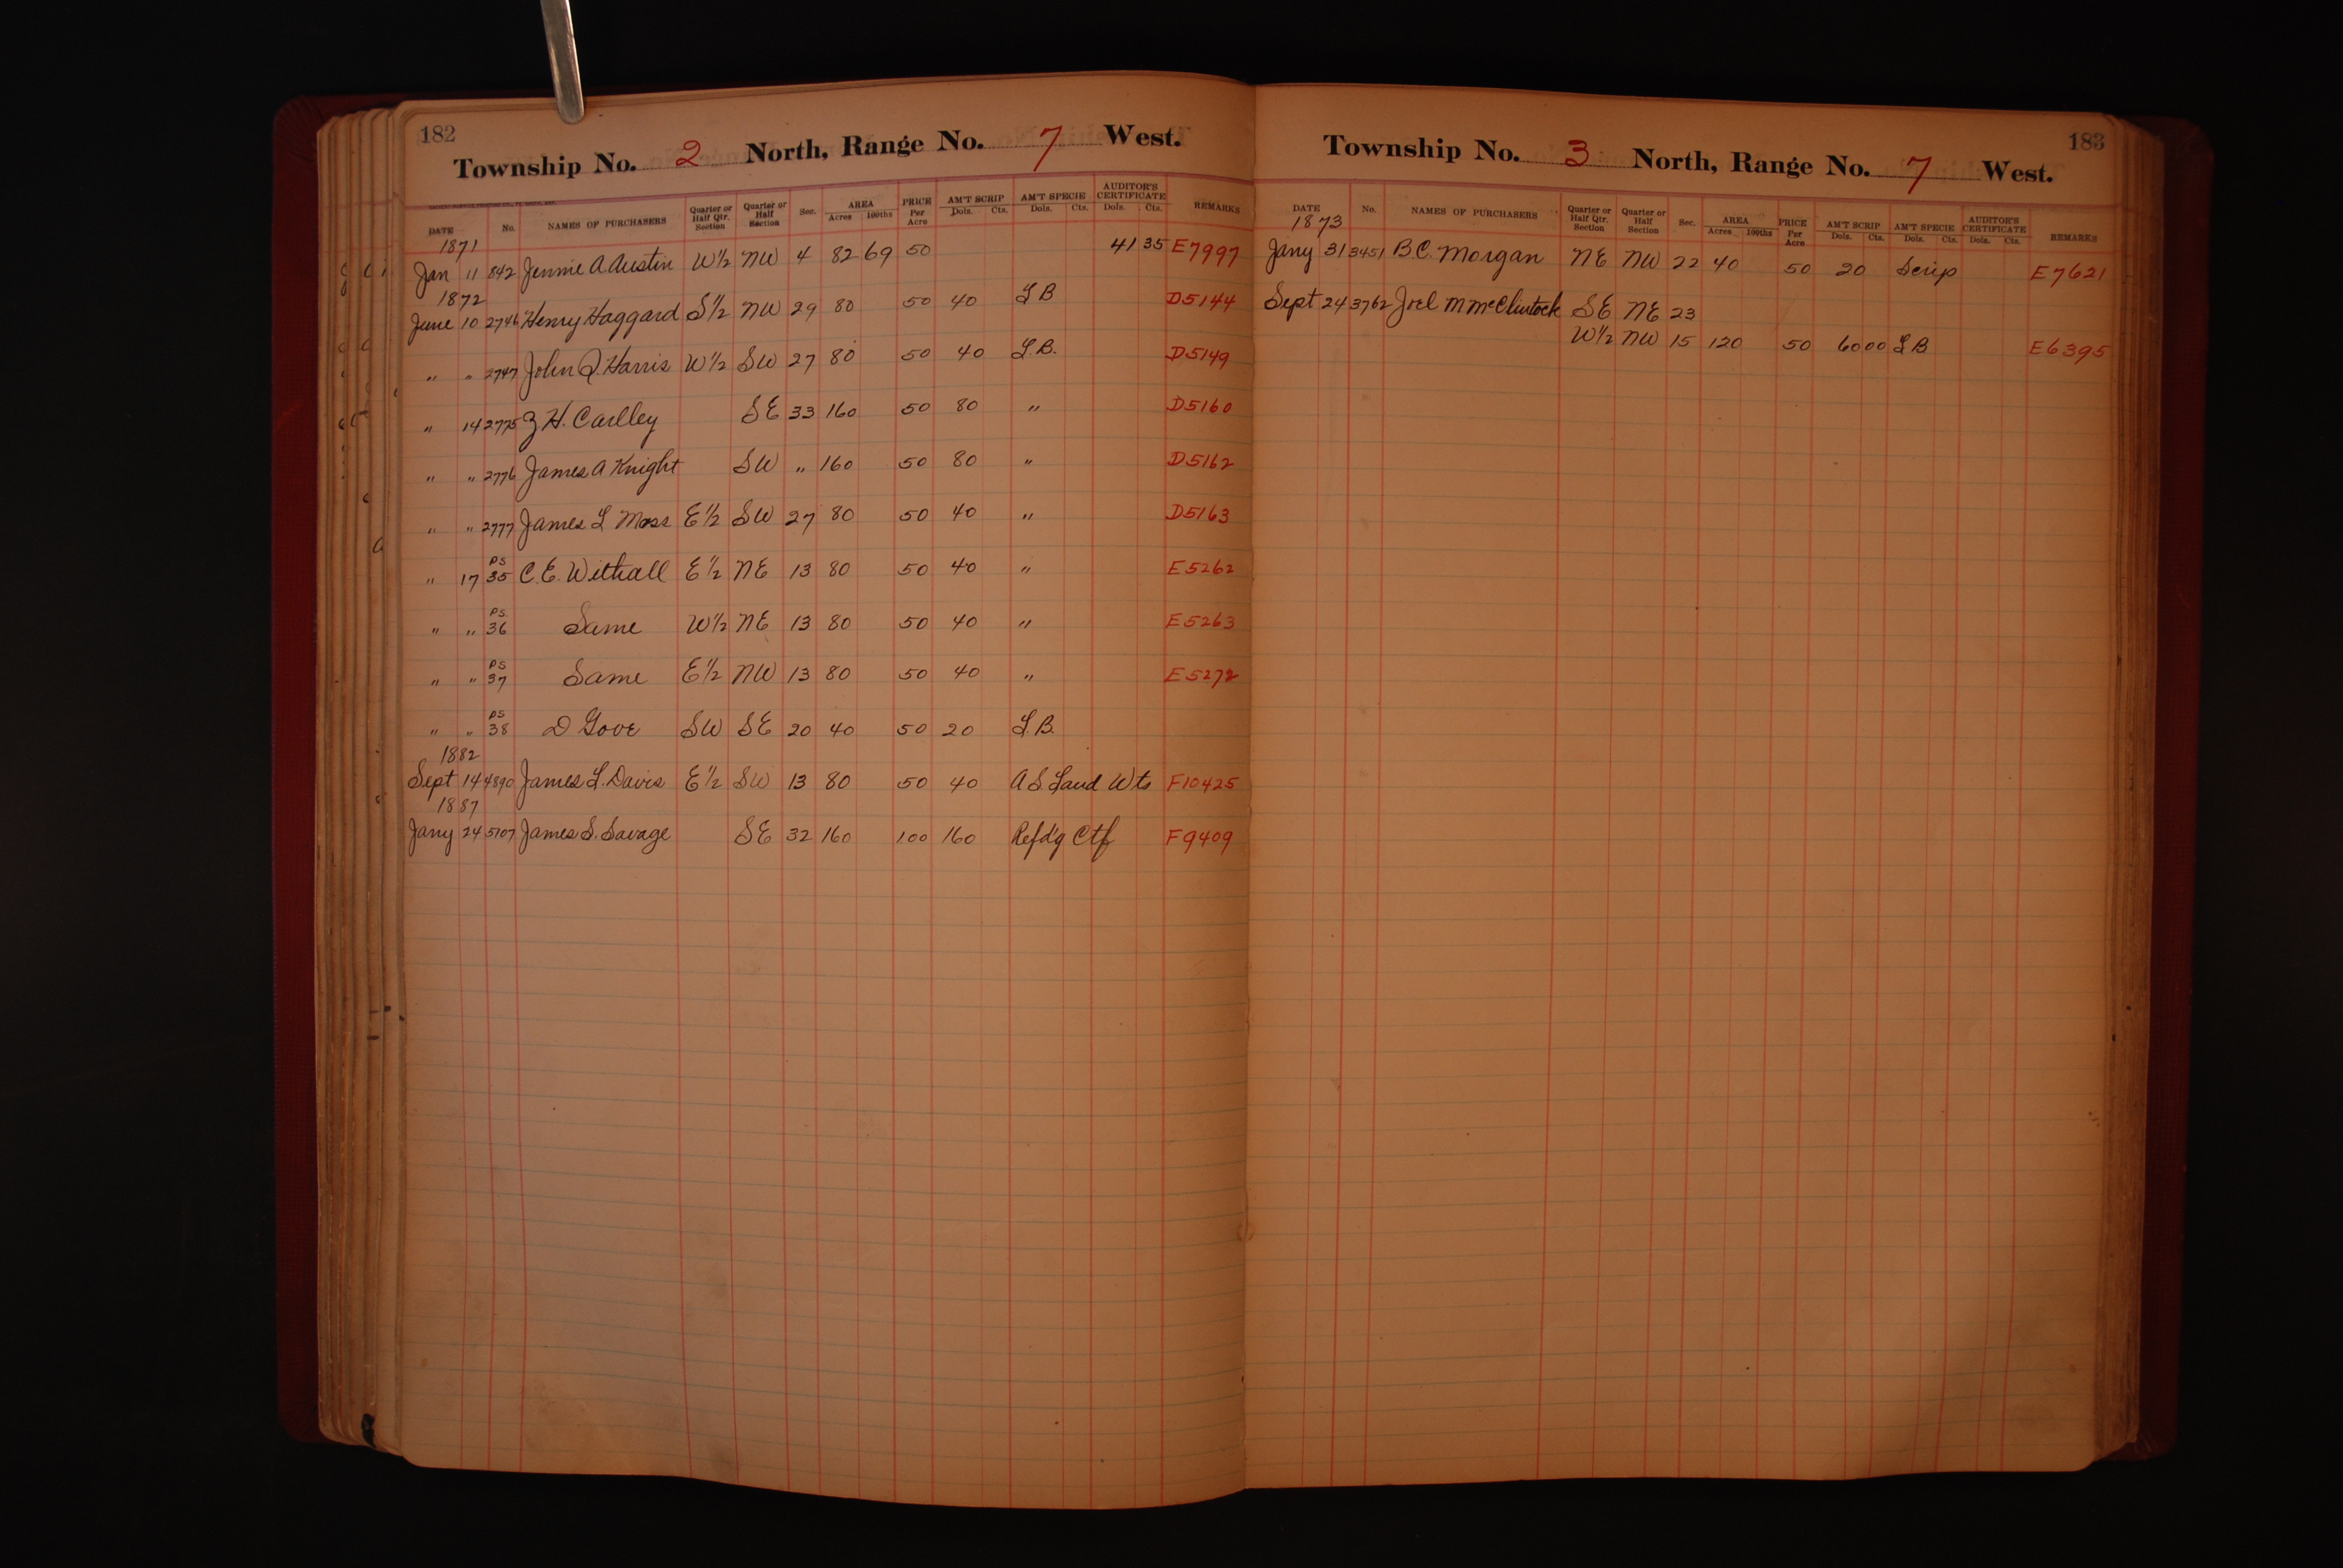 182
Township No. 2 North, Range No. 7 West.
DATE No. NAMES OF PURCHASERS Quarter or Half Qtr. Section Quarter or Half Section Sec. AREA Acres 100ths PRICE Per Acre AM'T SCRIP Dols. Cts. AM'T SPECIE Dols. Cts. AUDITOR'S CERTIFICATE Dols. Cts. REMARKS
1871
Jan 11 842 Jennie A Austin W½ NW 4 82 69 50 41 35 E7997
1872
June 10 2746 Henry Haggard S½ NW 29 80 50 40 L B D5144
" " 2747 John Q. Harris W½ SW 27 80 50 40 L.B. D5149
" 14 2775 Z H. Carlley SE 33 160 50 80 " D5160
" " 2776 James A Knight SW " 160 50 80 " D5162
" " 2777 James L Moss E½ SW 27 80 50 40 " D5163
" 17 PS 35 C.E. Withall E½ NE 13 80 50 40 " E5262
" " PS. 36 Same W½ NE 13 80 50 40 " E5263
" " PS 37 Same E½ NW 13 80 50 40 " E5272
" " PS 38 D Gove SW SE 20 40 50 20 L.B.
1882
Sept 14 4890 James L. Davis E½ SW 13 80 50 40 A S. Land Wts F10425
1887
Jany 24 5107 James S. Savage SE 32 160 1.00 160 Refd'g Ctf F9409
183
Township No. 3 North, Range No. 7 West.
DATE No. NAMES OF PURCHASERS Quarter or Half Qtr. Section Quarter or Half Section Sec. AREA Acres 100ths PRICE Per Acre AM'T SCRIP Dols. Cts. AM'T SPECIE Dols. Cts. AUDITOR'S CERTIFICATE Dols. Cts. REMARKS
1873
Jany 31 3451 B.C. Morgan NE NW 22 40 50 20 Scrip E7621
Sept 24 3762 Joel M McClintock SE NE 23
W½ NW 15 120 50 60 00 L B E6395